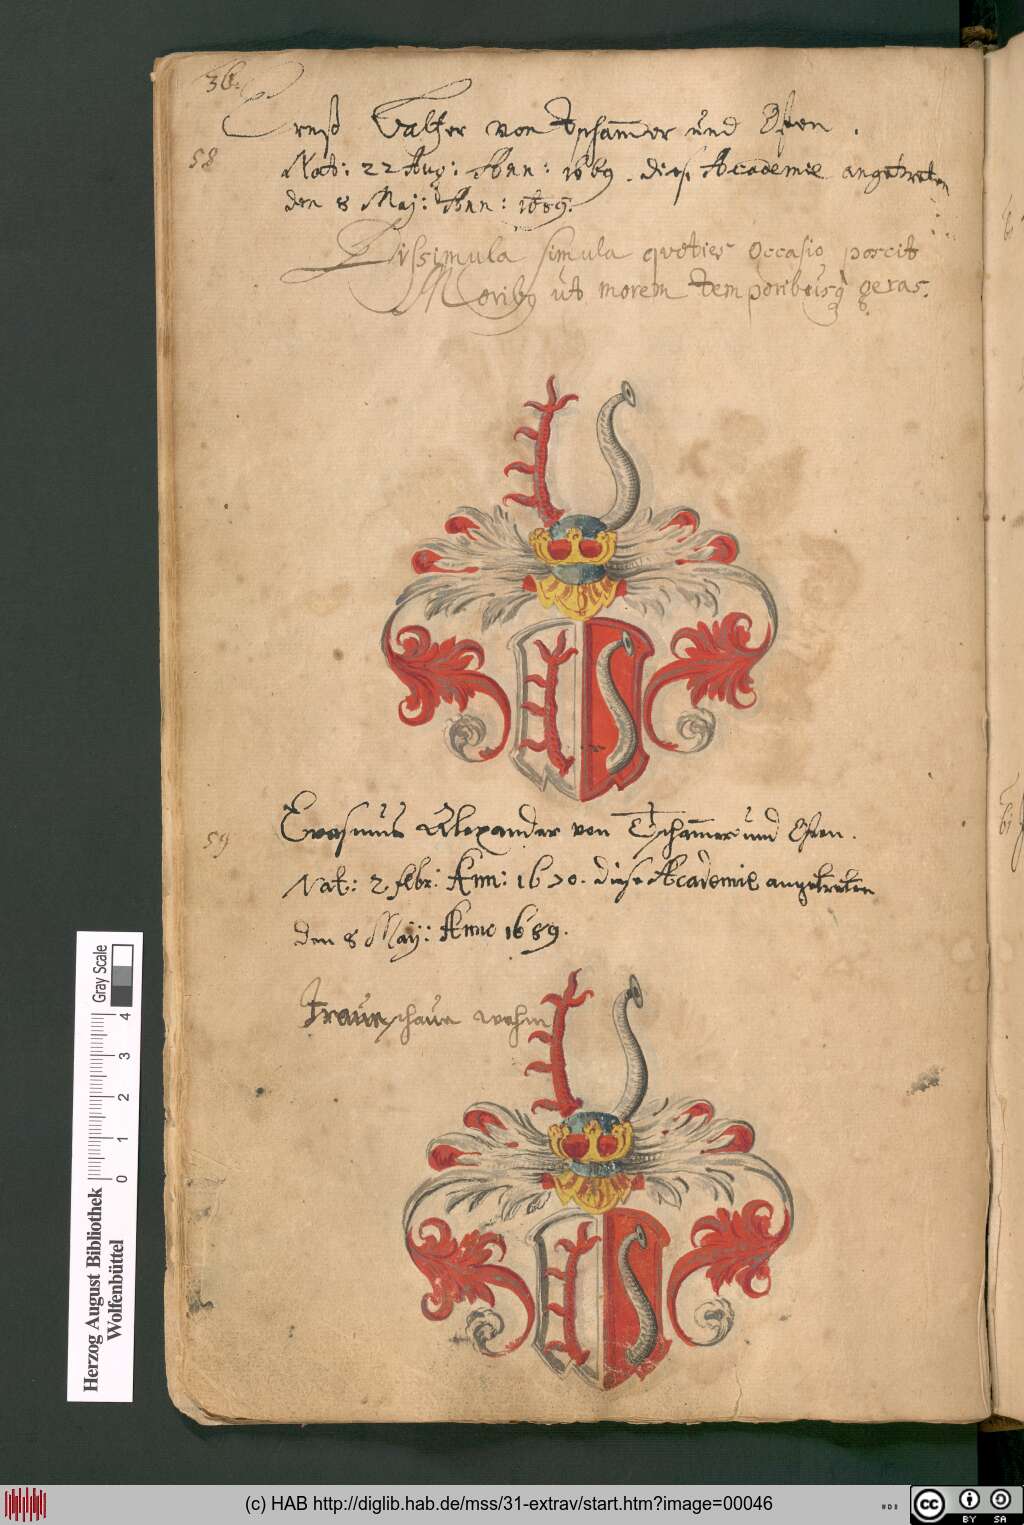 36.
Ernst Balzer von Tschammer und Osten.
58
Nat: 22 Aug: Ann: 1669. diese Academie angetreten
den 8 Maj: Ann: 1689.
Dissimula simula quoties occasio poscit
Moribq ut morem temporibusq geras.
59
Erasmus Alexander von Tschammer und Osten.
Nat: 2. febr: Ann: 1670. diese Academie angetreten
den 8 May: Anno 1689.
Trau schaue wehm
Herzog August Bibliothek
Wolfenbüttel
0 1 2 3 4
Gray Scale
(c) HAB http://diglib.hab.de/mss/31-extrav/start.htm?image=00046
cc BY SA